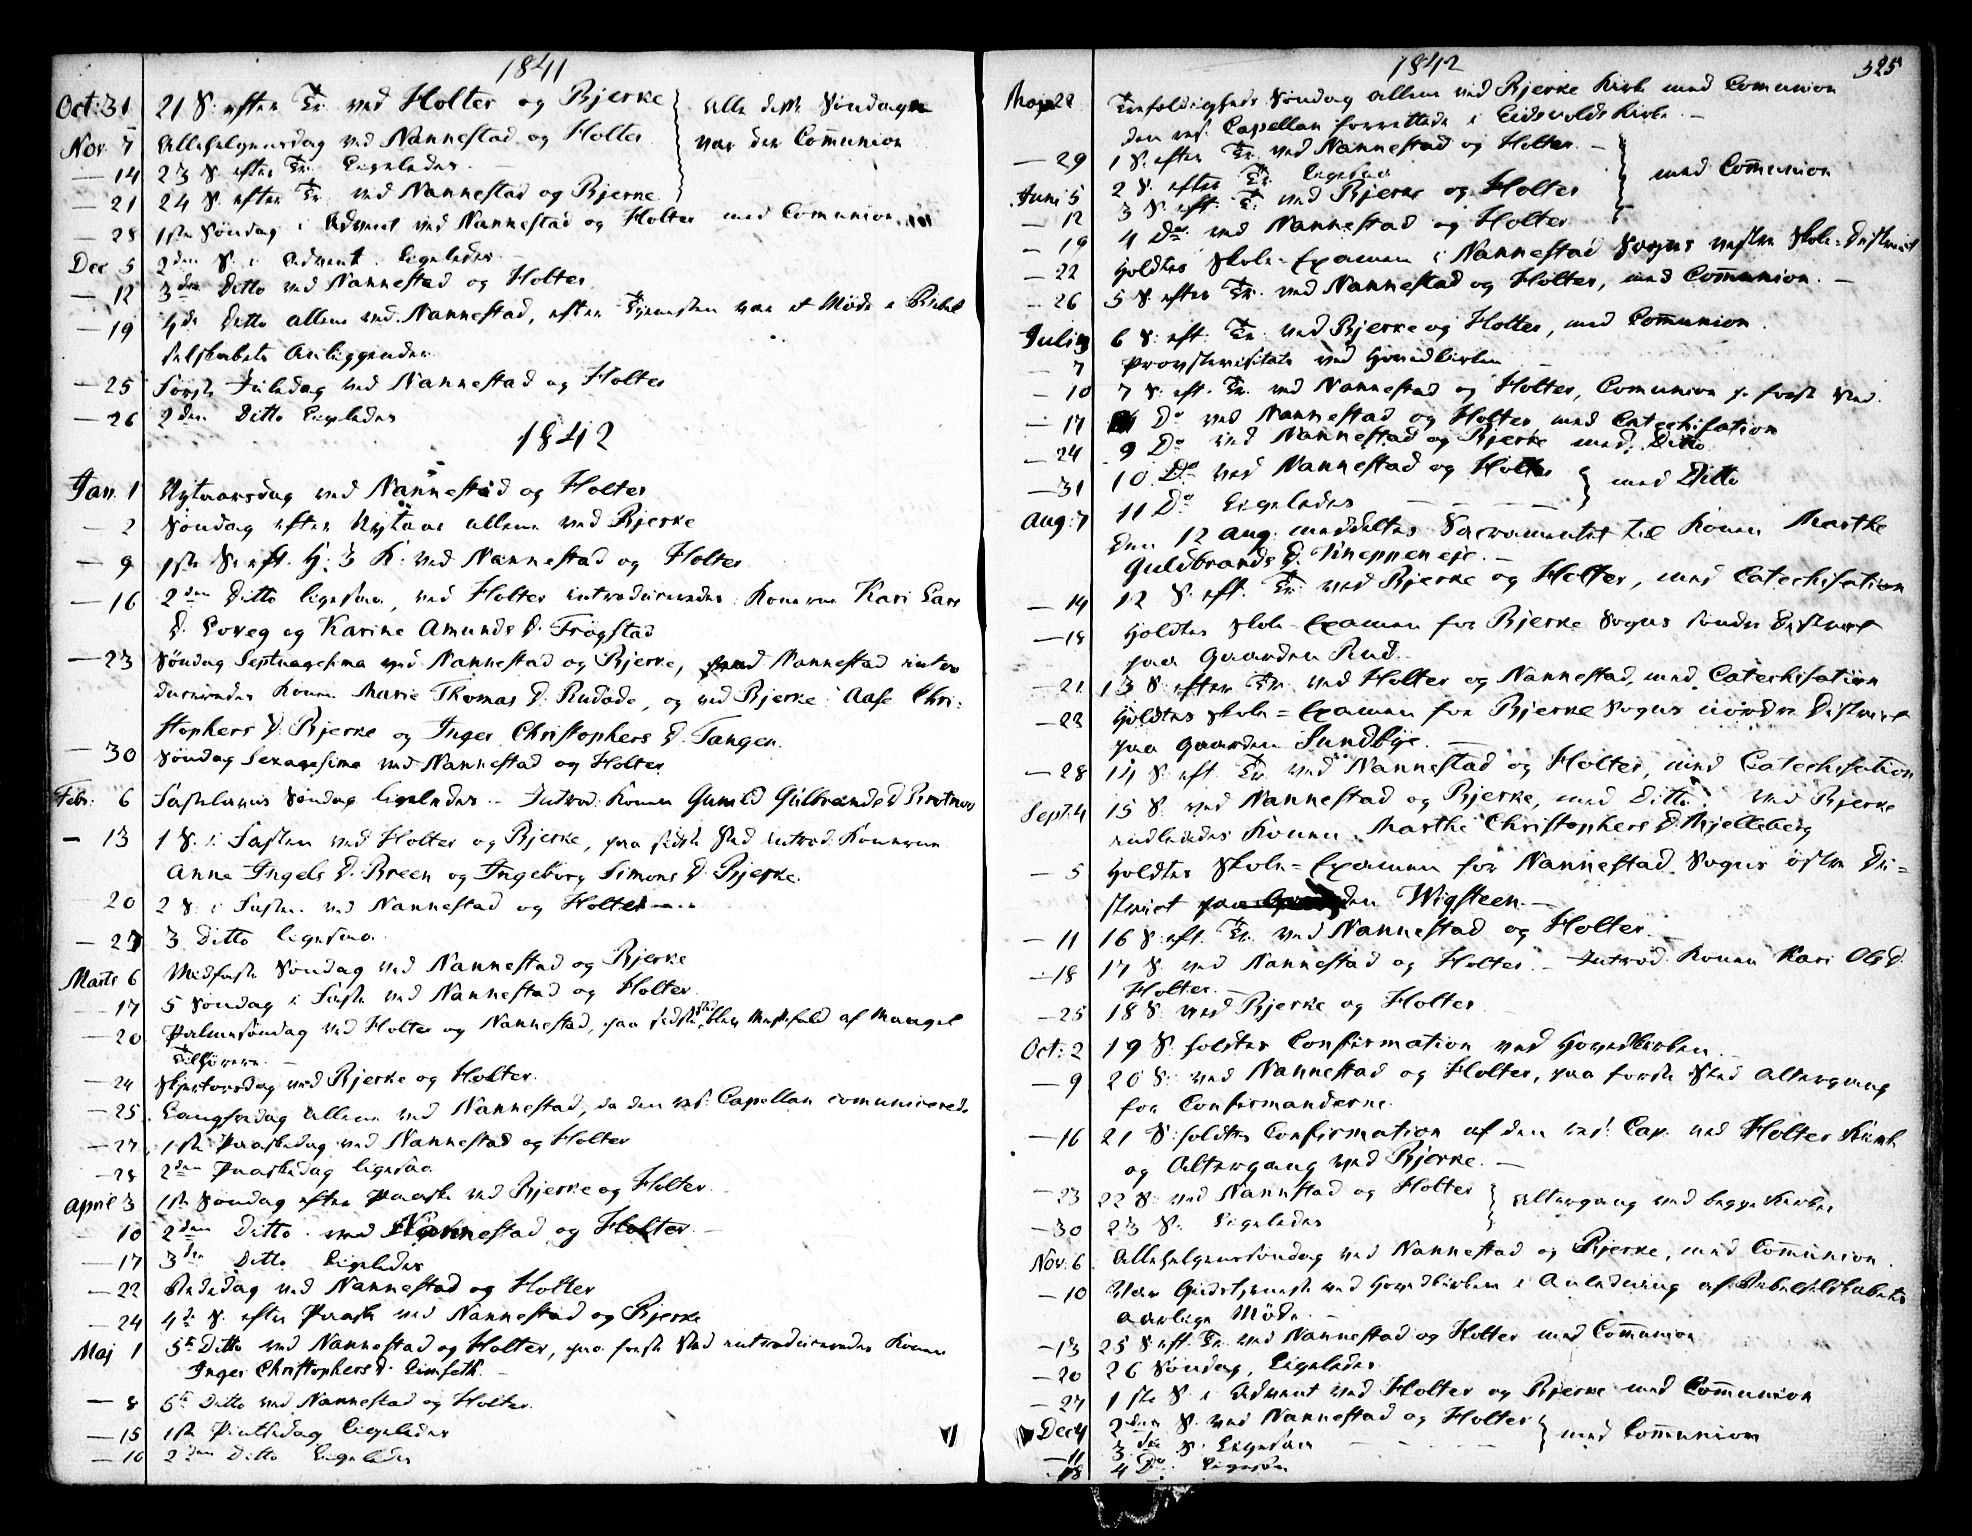 1841
Oct: 31 21 S: efter Tr. ved Holter og Bjerke } Alle disse Søndage
Nov 7 Allehelgensdag ved Nannestad og Holter } var der Comunion
— 14 23 S. efter Tr. Ligeledes. —
— 21 24 S. efter Tr. ved Nannestad og Bjerke
— 28 1ste Søndag i Advent ved Nannestad og Holter med Comunion
Dec 5 2den S. i Advent. Ligeledes
— 12 3die Ditto ved Nannestad og Holter
— 19 4de Ditto allene ved Nannestad, efter Tjenesten var et Møde i Bibel
selskabets Anliggender.
— 25 Første Juledag ved Nannestad og Holter
— 26 2den Ditto Ligeledes
1842
Jan. 1 Nytaarsdag ved Nannestad og Holter
— 2 Søndag efter Nytaar allene ved Bjerke
— 9 1ste S. eft. H. 3 K. ved Nannestad og Holter
— 16 2den Ditto ligesaa, ved Holter introduceredes Konerne Kari Lars
D. Loveg og Karine Amunds D. Trøgstad
— 23 Søndag Septuagesima ved Nannestad og Bjerke, ved Nannestad intro
duceredes Konen Marie Thomas D. Rudade, og ved Bjerke Aase Chri-
stophers D. Bjerke og Inger Christophers D. Tangen.
— 30 Søndag Sexagesima ved Nannestad og Holter
Febr. 6 Fastelavns Søndag ligeledes — Introd: Konen Gunild Gulbrands D
— 13 1 S. i Fasten ved Holter og Bjerke, paa sidste Sted introd: Konerne
Anne Ingels D. Breen og Ingeborg Simons D. Bjerke.
20 2 S. i Faste. ved Nannestad og Holter
— 27 3 Ditto ligesaa
Marts 6 Midfaste Søndag ved Nannestad og Bjerke
— 17 5 Søndag i Faste ved Nannestad og Holter
— 20 Palmesøndag ved Holter og Nannestad, paa sidste Sted blev Messefald af Mangel
Tilhørere. —
— 24 Skjertorsdag ved Bjerke og Holter.
— 25 Langfredag allene ved Nannestad, da den res: Capellan comunicerede
— 27 1ste Paaskedag ved Nannestad og Holter
— 28 2den Paaskedag ligesaa
April 3 1ste Søndag efter Paaske ved Bjerke og Holter.
— 10 2den Ditto ved Nannestad og Holter —
— 17 3die Ditto Ligeledes
— 22 Bededag ved Nannestad og Holter
— 24 4de S. efter Paaske ved Nannestad og Bjerke
Maj 1 5te Ditto ved Nannestad og Holter, paa første Sted introduceredes Konen
Inger Christophers D.
— 8 6te Ditto ved Nannestad og Holter.
— 15 1ste Pintsedag Ligeledes
— 16 2den Ditto Ligeledes
1842 325
Maj 22 Trefoldigheds Søndag allene ved Bjerke Kirke med Comunion
den res. Capellan forrettede i Eidsvolds Kirke. —
— 29 1 S. efter Tr. ved Nannestad og Holter. —
Juni 5 2 S. efter Tr. Ligesaa } med Comunion
— 12 3 S. eft: Tr. ved Bjerke og Holter
— 19 4 Do ved Nannestad og Holter
— 22 Holdtes Skole-Examen i Nannestad Sogns vestre Skole-District
— 26 5 S. efter Tr. ved Nannestad og Holter, med Comunion. —
Juli 3 6 S. eft. Tr. ved Bjerke og Holter, med Comunion.
— 7 Provstevisitats ved Hovedkirken —
— 10 7 S. eft. Tr. ved Nannestad og Holter, Comunion p. første Sted.
— 17 Do ved Nannestad og Holter med Catechisation
— 24 9 Do ved Nannestad og Bjerke med Ditto
— 31 10 Do ved Nannestad og Holter } med Ditto
Aug: 7 11 Do Ligeledes
Den 12 Aug. meddeltes Sacramentet til Konen Marthe
Guldbrands D. Kneppen eje. —
— 14 12 S. eft. Tr. ved Bjerke og Holter, med Catechisation
— 18 Holdtes Skole-Examen for Bjerke Sogns søndre District
paa Gaarden Rud.
— 21 13 S. efter Tr. ved Holter og Nannestad, med Catechisation
— 22 Holdtes Skole-Examen for Bjerke Sogns nordre District
paa Gaarden Sundbye.
— 28 14 S. eft. Tr. ved Nannestad og Holter, med Catechisation
Sept: 4 15 S. ved Nannestad og Bjerke, med Ditto. Ved Bjerke
indlededes Konen Marthe Christophers D. Mjelleberg
— 5 Holdtes Skole-Examen for Nannestad Sogns østre Di-
strict Wigsteen. —
— 11 16 S. eft. Tr. ved Nannestad og Holter. —
— 18 17 S. ved Nannestad og Holter. — Introd. Konen Kari Ols D.
Holter. —
— 25 18 S. ved Bjerke og Holter
Oct: 2 19 S. holdtes Confirmation ved Hovedkirken
— 9 20 S. ved Nannestad og Holter, paa første Sted Altergang
for Confirmanderne.
— 16 21 S. holdtes Confirmation af den res. Cap. ved Holter Kirke
og Altergang ved Bjerke. —
— 23 22 S. ved Nannestad og Holter } Altergang ved begge Kirker
— 30 23 S. Ligeledes
Nov. 6 Allehelgenssøndag ved Nannestad og Bjerke, med Comunion.
— 10 Var Gudstjeneste ved Hovedkirken i Anledning af Bibelselskabets
aarlige Møde. —
— 13 25 S. eft. Tr. ved Nannestad og Holter med Comunion
— 20 26 Søndag, Ligeledes
— 27 1ste S. i Advent ved Holter og Bjerke med Comunion
Dec 4 2den S. ved Nannestad og Holter } med Comunion
— 11 3die S. Ligesaa
— 18 4 Do. Ligesaa